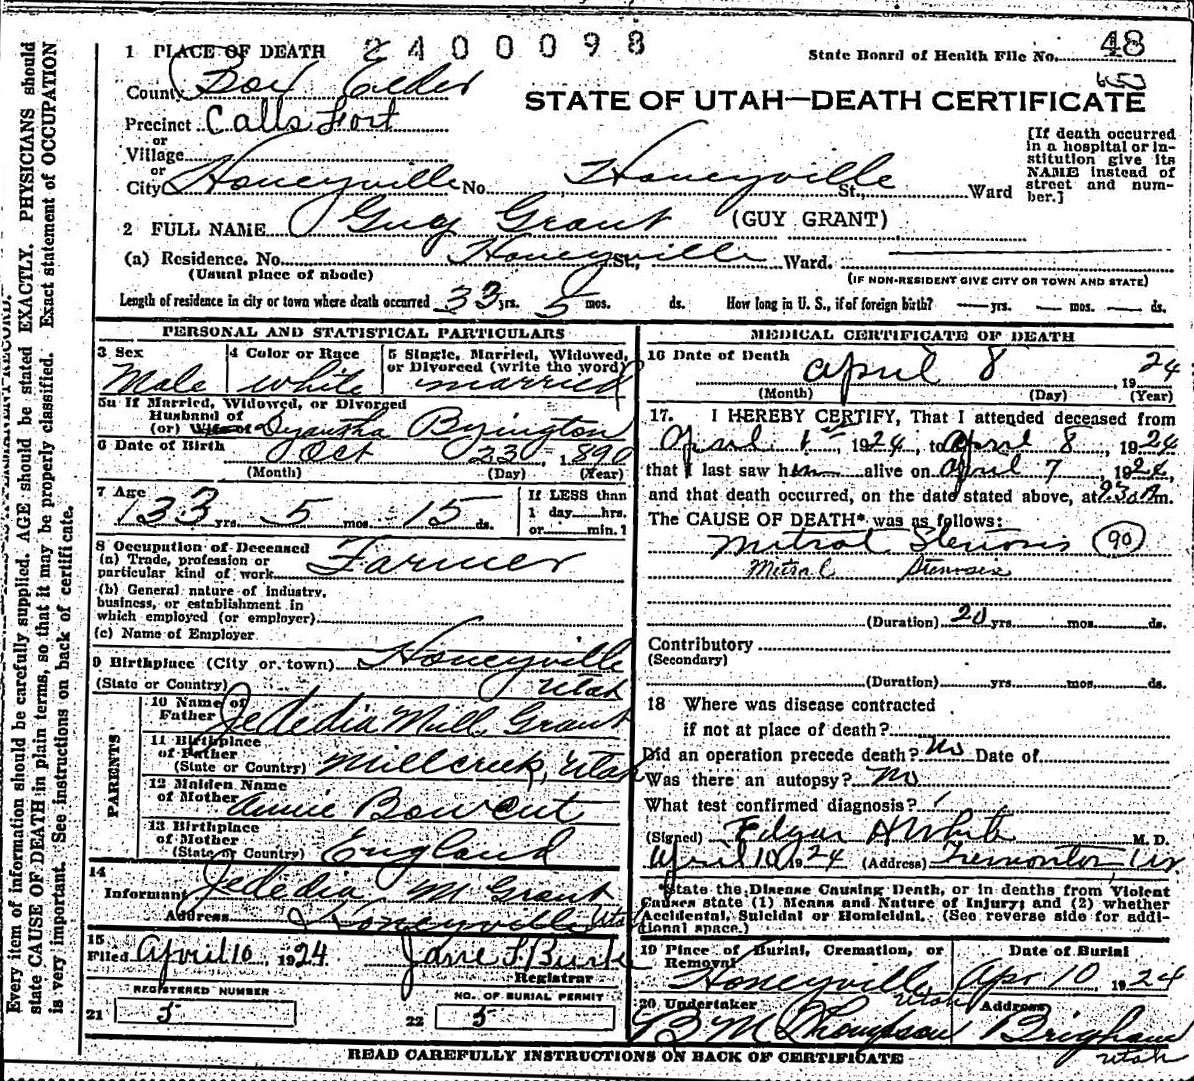 1 PLACE OF DEATH 2400098
State Board of Health File No. 48
County Box Elder
STATE OF UTAH—DEATH CERTIFICATE
Precinct Calls Fort
or
Village
or
City Honeyville No. Honeyville St., Ward
[If death occurred
in a hospital or in-
stitution give its
NAME instead of
street and num-
ber.]
2 FULL NAME Guy Grant (GUY GRANT)
(a) Residence. No. Honeyville St., Ward.
(Usual place of abode) (IF NON-RESIDENT GIVE CITY OR TOWN AND STATE)
Length of residence in city or town where death occurred 33 yrs. 5 mos. ds. How long in U. S., if of foreign birth? — yrs. — mos. — ds.
PERSONAL AND STATISTICAL PARTICULARS
3 Sex
Male
4 Color or Race
white
5 Single, Married, Widowed,
or Divorced (write the word)
married
5a If Married, Widowed, or Divorced
Husband of
(or) Wife of Byington
6 Date of Birth Oct 23, 1890
(Month) (Day) (Year)
7 Age 33 yrs. 5 mos. 15 ds.
If LESS than
1 day hrs.
or min.?
8 Occupation of Deceased
(a) Trade, profession or
particular kind of work Farmer
(b) General nature of industry,
business, or establishment in
which employed (or employer)
(c) Name of Employer
9 Birthplace (City or town) Honeyville
(State or Country) Utah
PARENTS
10 Name of
Father Jededia Grant
11 Birthplace
of Father
(State or Country) Millcreek, Utah
12 Maiden Name
of Mother Annie Bowcut
13 Birthplace
of Mother
(State or Country) England
14
Informant Jededia M Grant
Address Honeyville Utah
15
Filed April 10 1924 Jane F. Burk
Registrar
REGISTERED NUMBER
21 5
NO. OF BURIAL PERMIT
22 5
MEDICAL CERTIFICATE OF DEATH
16 Date of Death April 8, 1924
(Month) (Day) (Year)
17. I HEREBY CERTIFY, That I attended deceased from
April 1st, 1924, to April 8, 1924
that I last saw him alive on April 7, 1924,
and that death occurred, on the date stated above, at 9.30 A m.
The CAUSE OF DEATH* was as follows:
Mitral Stenosis (90)
Mitral Stenosis
(Duration) 20 yrs. mos. ds.
Contributory
(Secondary)
(Duration) yrs. mos. ds.
18 Where was disease contracted
if not at place of death?
Did an operation precede death? No Date of
Was there an autopsy? No
What test confirmed diagnosis?
(Signed) Edgar H White M. D.
April 10, 1924 (Address) Tremonton Ut
*State the Disease Causing Death, or in deaths from Violent
Causes state (1) Means and Nature of Injury; and (2) whether
Accidental, Suicidal or Homicidal. (See reverse side for addi-
tional space.)
19 Place of Burial, Cremation, or
Removal
Honeyville, Utah
Date of Burial
Apr 10, 1924
20 Undertaker
B M Thompson
Address
Brigham
Utah
READ CAREFULLY INSTRUCTIONS ON BACK OF CERTIFICATE
Every item of information should be carefully supplied. AGE should be stated EXACTLY. PHYSICIANS should
state CAUSE OF DEATH in plain terms, so that it may be properly classified. Exact statement of OCCUPATION
is very important. See instructions on back of certificate.